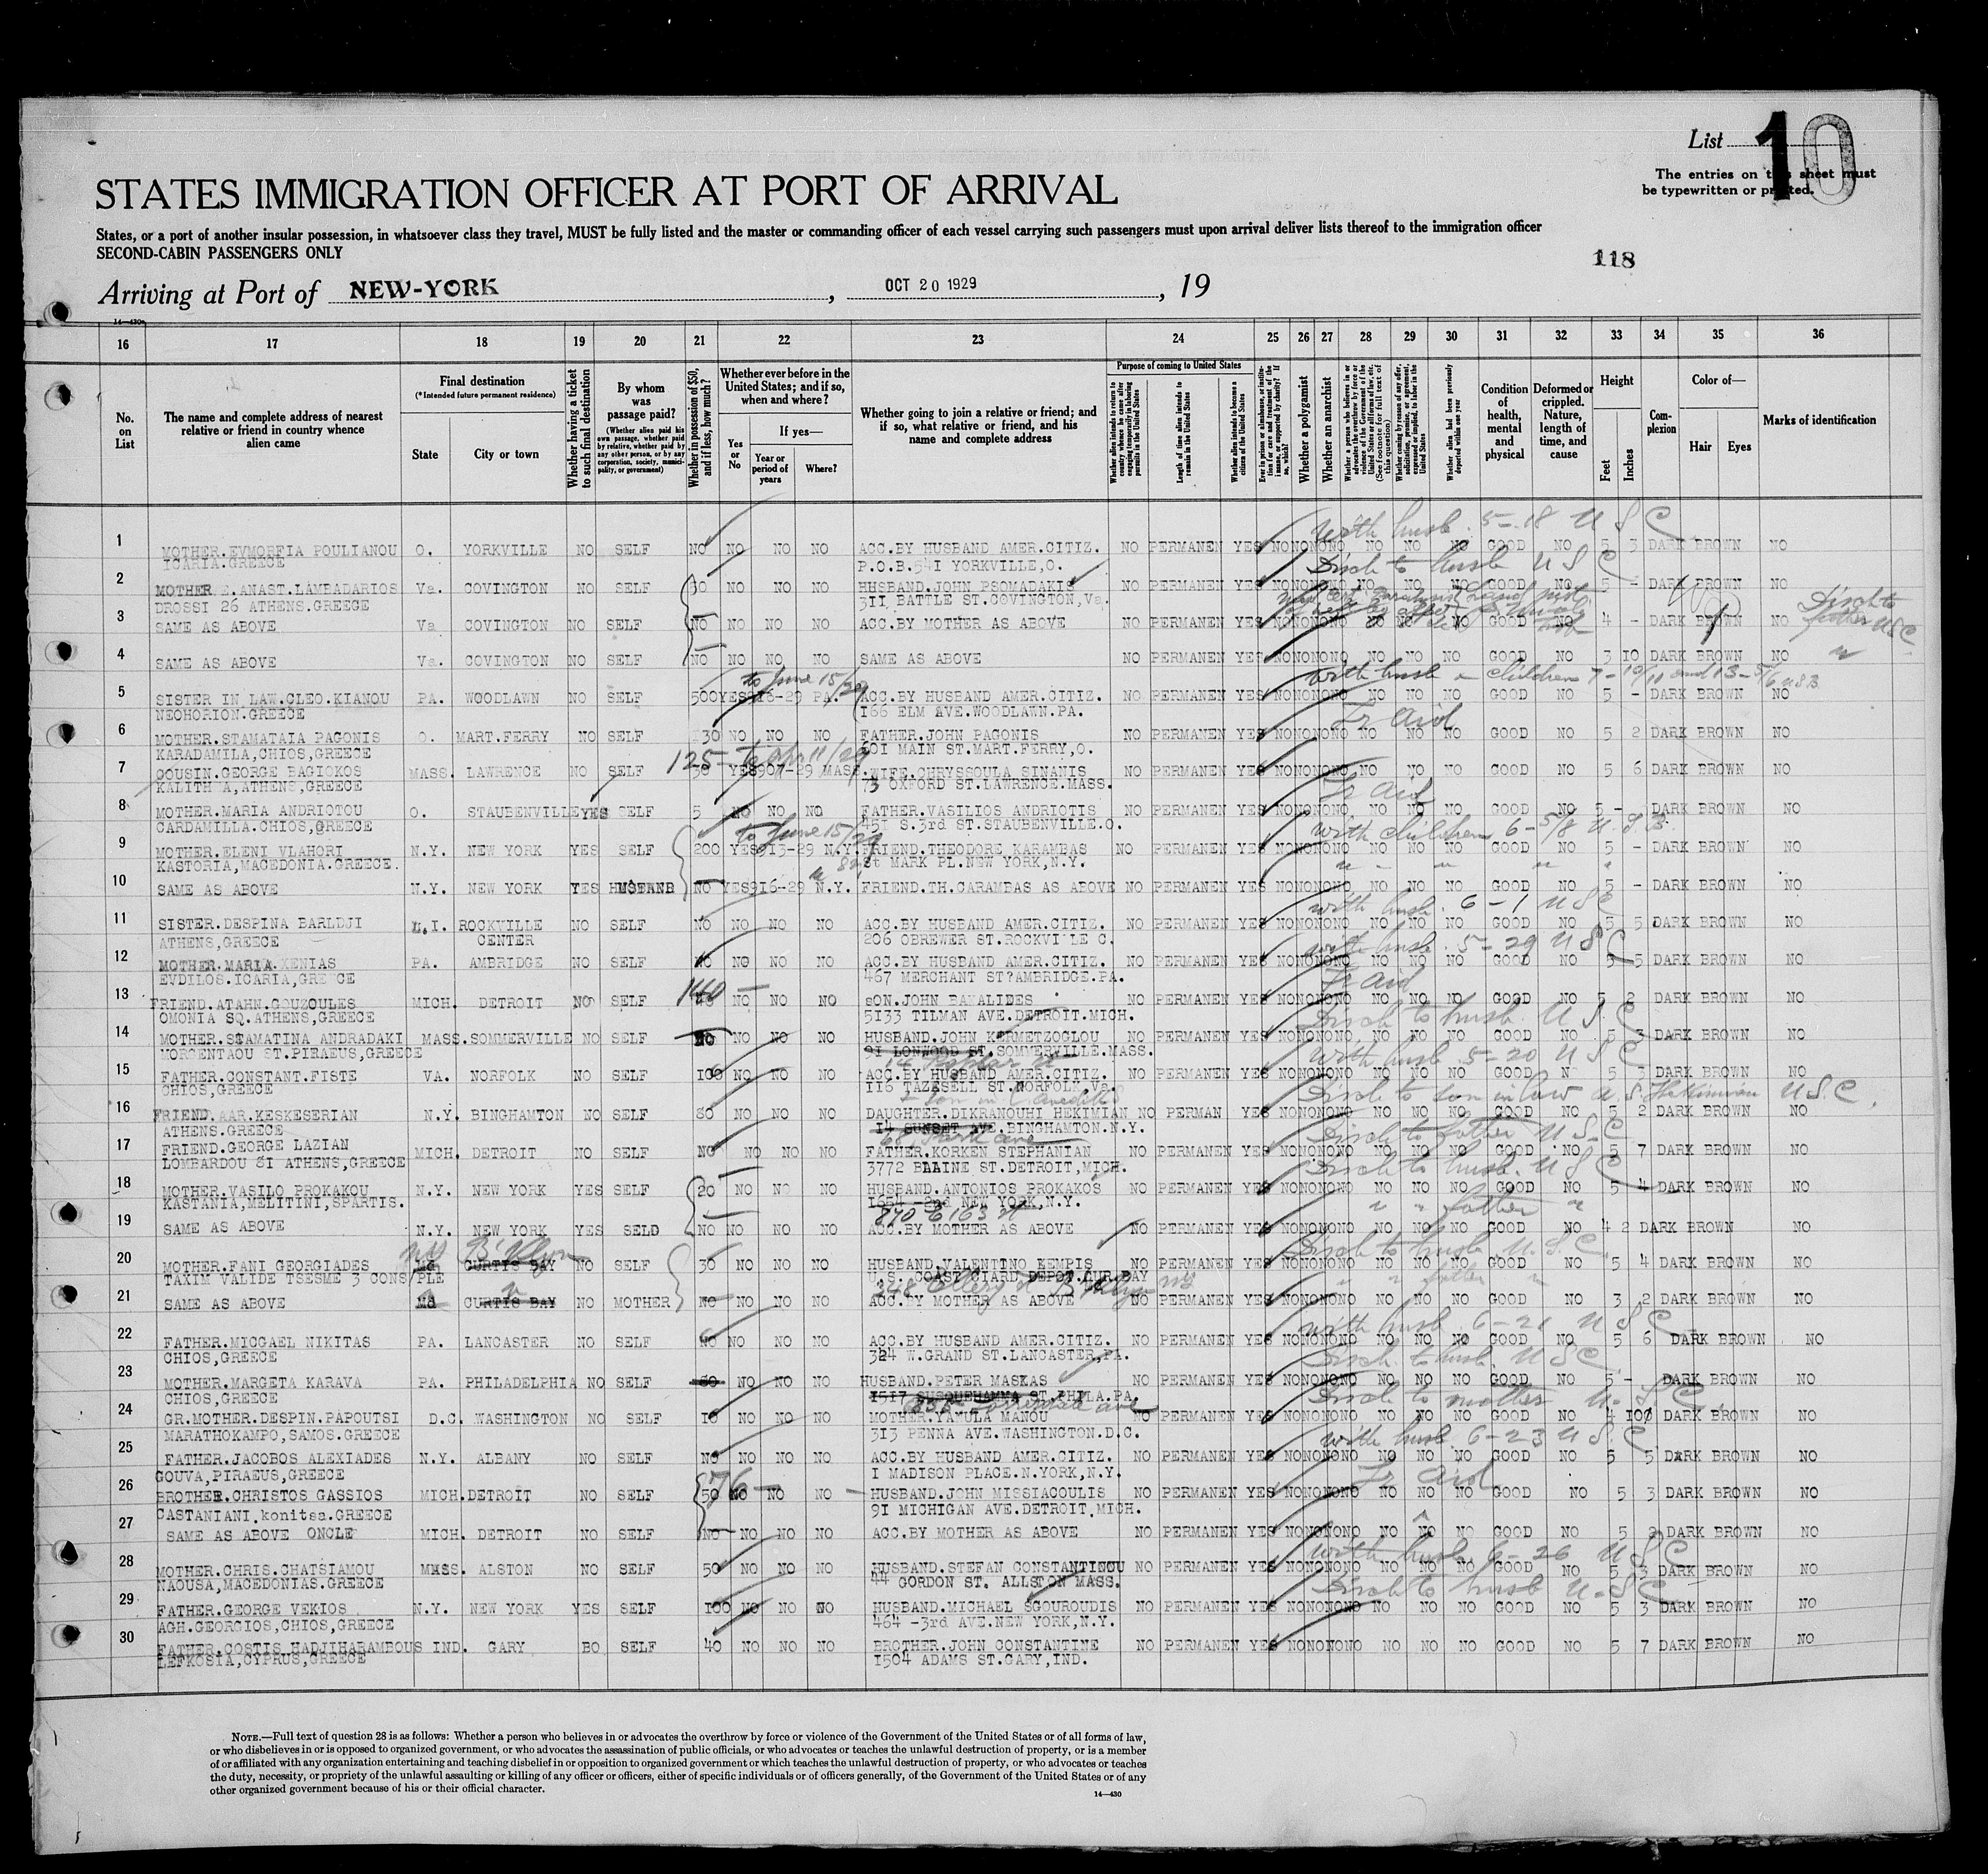 List 10
The entries on this sheet must
be typewritten or printed.
STATES IMMIGRATION OFFICER AT PORT OF ARRIVAL
States, or a port of another insular possession, in whatsoever class they travel, MUST be fully listed and the master or commanding officer of each vessel carrying such passengers must upon arrival deliver lists thereof to the immigration officer
SECOND-CABIN PASSENGERS ONLY
118
Arriving at Port of NEW-YORK, OCT 20 1929, 19
14—430
16 17 18 19 20 21 22 23 24 25 26 27 28 29 30 31 32 33 34 35 36
No. on List
The name and complete address of nearest relative or friend in country whence alien came
Final destination (*Intended future permanent residence)
State City or town
Whether having a ticket to such final destination
By whom was passage paid?
(Whether alien paid his own passage, whether paid by relative, whether paid by any other person, or by any corporation, society, municipality, or government)
Whether in possession of $50, and if less, how much?
Whether ever before in the United States; and if so, when and where?
Yes or No
If yes—
Year or period of years Where?
Whether going to join a relative or friend; and if so, what relative or friend, and his name and complete address
Purpose of coming to United States
Whether alien intends to return to country whence he came after engaging temporarily in laboring pursuits in the United States
Length of time alien intends to remain in the United States
Whether alien intends to become a citizen of the United States
Whether a polygamist
Whether an anarchist
Whether alien had been previously deported within one year
Condition of health, mental and physical
Deformed or crippled. Nature, length of time, and cause
Height
Feet Inches
Complexion
Color of—
Hair Eyes
Marks of identification
with husb. 5-18 U S C
1 MOTHER.EVMORFIA POULIANOU O. YORKVILLE NO SELF NO NO NO NO ACC.BY HUSBAND AMER.CITIZ. NO PERMANEN YES NO NO NO NO NO NO NO GOOD NO 5 3 DARK BROWN NO
ICARIA.GREECE P.O.B.541 YORKVILLE,O.
Disch to husb U S C
2 MOTHER E.ANAST.LAMBADARIOS Va. COVINGTON NO SELF 30 NO NO NO HHSBAND.JOHN PSOMADAKIS NO PERMANEN YES NO NO NO NO NO NO NO GOOD NO 5 - DARK BROWN NO
DROSSI 26 ATHENS.GREEGE 311 BATTLE ST.COVINGTON,Va.
Disch to father USC
3 SAME AS ABOVE Va COVINGTON NO SELF NO NO NO NO ACC.BY MOTHER AS ABOVE NO PERMANEN YES NO NO NO NO NO NO NO GOOD NO 4 - DARK BROWN NO
4 SAME AS ABOVE Va. COVINGTON NO SELF NO NO NO NO SAME AS ABOVE NO PERMANEN YES NO NO NO NO NO NO NO GOOD NO 3 10 DARK BROWN NO
to June 15/29 with husb children
5 SISTER IN LAW.CLEO.KIANOU PA. WOODLAWN NO SELF 500 YES 916-29 PA. ACC.BY HUSBAND AMER.CITIZ. NO PERMANEN YES NO NO NO NO NO NO NO GOOD NO 5 - DARK BROWN NO
NEOHORION.GREECE 166 ELM AVE.WOODLAWN.PA.
Tr Aid
6 MOTHER.STAMATAIA PAGONIS O. MART.FERRY NO SELF 30 NO NO NO FATHER.JOHN PAGONIS NO PERMANEN YES NO NO NO NO NO NO NO GOOD NO 5 2 DARK BROWN NO
KARADAMILA,CHIOS,GREECE 601 MAIN ST.MART.FERRY,O.
125-
7 COUSIN.GEORGE BAGIOKOS MASS. LAWRENCE NO SELF 30 YES 907-29 MASS. WIFE.CHRYSSOULA SINANIS NO PERMANEN YES NO NO NO NO NO NO NO GOOD NO 5 6 DARK BROWN NO
KALITH A,ATHENS,GREECE 73 OXFORD ST.LAWRENCE.MASS.
Tr Aid
8 MOTHER.MARIA ANDRIOTOU O. STAUBENVILLE YES SELF 5 NO NO NO FATHER.VASILIOS ANDRIOTIS NO PERMANEN YES NO NO NO NO NO NO NO GOOD NO 5 - DARK BROWN NO
CARDAMILLA.CHIOS,GREECE 451 S.3rd ST.STAUBENVILLE.O.
to June 15/29 with children 6-5/8 U.S.B.
9 MOTHER.ELENI VLAHORI N.Y. NEW YORK YES SELF 200 YES 913-29 N.Y. FRIEND.THEODORE KARAMBAS NO PERMANEN YES NO NO NO NO NO NO NO GOOD NO 5 - DARK BROWN NO
KASTORIA,MACEDONIA.GREECE. St MARK PL.NEW YORK,N.Y.
10 SAME AS ABOVE N.Y. NEW YORK YES HUSBAND NO YES 916-29 N.Y. FRIEND.TH.CARAMBAS AS ABOVE NO PERMANEN YES NO NO NO NO NO NO NO GOOD NO 5 - DARK BROWN NO
with husb. 6-1 U S C
11 SISTER.DESPINA BARLDJI L.I. ROCKVILLE NO SELF NO NO NO NO ACC.BY HUSBAND AMER.CITIZ. NO PERMANEN YES NO NO NO NO NO NO NO GOOD NO 5 5 DARK BROWN NO
ATHENS,GREECE CENTER 206 OBREWER ST.ROCKVILLE C.
with husb. 5-29 U S C
12 MOTHER.MARIA.XENIAS PA. AMBRIDGE NO SELF NO NO NO NO ACC.BY HUSBAND AMER.CITIZ. NO PERMANEN YES NO NO NO NO NO NO NO GOOD NO 5 5 DARK BROWN NO
EVDILOS.ICARIA,GRE CE 467 MERCHANT ST?AMBRIDGE.PA.
140- Tr Aid
13 FRIEND.ATAHN.GOUZOULES MICH. DETROIT NO SELF NO NO NO SON.JOHN BAKALIDES NO PERMANEN YES NO NO NO NO NO NO NO GOOD NO 5 2 DARK BROWN NO
OMONIA SQ.ATHENS,GREECE 5133 TILMAN AVE.DETROIT.MICH.
Disch to husb. U S C
14 MOTHER.STAMATINA ANDRADAKI MASS.SOMMERVILLE NO SELF NO NO NO HUSBAND.JOHN KERMETZOGLOU NO PERMANEN YES NO NO NO NO NO NO NO GOOD NO 5 3 DARK BROWN NO
MORGENTAOU ST.PIRAEUS,GREECE 91 LONWOOD ST.SOMMERVILLE.MASS.
with husb. 5-20 U S C
15 FATHER.CONSTANT.FISTE VA. NORFOLK NO SELF 100 NO NO NO ACC.BY HUSBAND AMER.CITIZ. NO PERMANEN YES NO NO NO NO NO NO NO GOOD N 5 3 DARK BROWN NO
CHIOS,GREECE 116 TAZESELL ST.NORFOLK,Va.
Disch to son in law A.S. Hekimian U S C.
16 FRIEND.AAR.KESKESERIAN N.Y. BINGHAMTON NO SELF 80 NO NO NO DAUGHTER.DIKRANOUHI HEKIMIAN NO PERMAN YES NO NO NO NO NO NO NO GOOD NO 5 2 DARK BROWN NO
ATHENS.GREECE 14 SUNSET AVE.BINGHAMTON.N.Y.
68 Park ave Disch to father U S C
17 FRIEND.GEORGE LAZIAN MICH. DETROIT NO SELF NO NO NO NO FATHER.KORKEN STEPHANIAN NO PERMANEN YES NO NO NO NO NO NO NO GOOD NO 5 7 DARK BROWN NO
LOMBARDOU 81 ATHENS,GREECE 3772 BLAINE ST.DETROIT,MICH.
Disch to husb. U S C
18 MOTHER.VASILO PROKAKOU N.Y. NEW YORK YES SELF 20 NO NO NO HUSBAND.ANTONIOS PROKAKOS NO PERMANEN YES NO NO NO NO NO NO NO GOOD NO 5 4 DARK BROWN NO
KASTANIA,MELITINI,SPARTIS. 1654 -2nd NEW YORK,N.Y.
870 E 163 st " " father "
19 SAME AS ABOVE N.Y. NEW YORK YES SELD NO NO NO NO ACC.BY MOTHER AS ABOVE NO PERMANEN YES NO NO NO NO NO NO NO GOOD NO 4 2 DARK BROWN NO
NY B'klyn Disch to husb. U.S.C.
20 MOTHER.FANI GEORGIADES Md CURTIS BAY NO SELF 30 NO NO NO HUSBAND.VALENTINO KEMPIS NO PERMANEN YES NO NO NO NO NO NO NO GOOD NO 5 4 DARK BROWN NO
TAXIM VALIDE TSESME 3 CONS/PLE U.S. COAST GIARD DEPOT.CUR.BAY
Ellery st B'klyn NY " " father "
21 SAME AS ABOVE Md CURTIS BAY NO MOTHER NO NO NO NO ACC.BY MOTHER AS ABOVE NO PERMANEN YES NO NO NO NO NO NO NO GOOD NO 3 2 DARK BROWN NO
with husb. 6-21 U S C
22 FATHER.MICGAEL NIKITAS PA. LANCASTER NO SELF NO NO NO NO ACC.BY HUSBAND AMER.CITIZ. NO PERMANEN YES NO NO NO NO NO NO NO GOOD NO 5 6 DARK BROWN NO
CHIOS,GREECE 324 W.GRAND ST.LANCASTER,PA.
Disch. to husb. U S C
23 MOTHER.MARGETA KARAVA PA. PHILADELPHIA NO SELF 80 NO NO NO HUSBAND.PETER MASKAS NO PERMANEN YES NO NO NO NO NO NO NO GOOD NO 5 - DARK BROWN NO
CHIOS,GREECE 1517 SUSQUEHANNA ST.PHILA.PA.
Disch to mother U.S.C
24 GR.MOTHER.DESPIN.PAPOUTSI D.C. WASHINGTON NO SELF 10 NO NO NO MOTHER.YAMULA MANOU NO PERMANEN YES NO NO NO NO NO NO NO GOOD NO 4 10 DARK BROWN NO
MARATHOKAMPO,SAMOS.GREECE 313 PENNA AVE.WASHINGTON.D.C.
with husb. 6-23 U S C
25 FATHER.JACOBOS ALEXIADES N.Y. ALBANY NO SELF NO NO NO NO ACC.BY HUSBAND AMER.CITIZ. NO PERMANEN YES NO NO NO NO NO NO NO GOOD NO 5 5 DARK BROWN NO
GOUVA,PIRAEUS,GREECE I MADISON PLACE.N.YORK,N.Y.
76- Tr Aid
26 BROTHER.CHRISTOS GASSIOS MICH.DETROIT NO SELF 50 NO NO NO HUSBAND.JOHN MISSIACOULIS NO PERMANEN YES NO NO NO NO NO NO NO GOOD NO 5 3 DARK BROWN NO
CASTANIANI,konitsa.GREECE 91 MICHIGAN AVE.DETROIT,MICH.
27 SAME AS ABOVE ONCLE MICH. DETROIT NO SELF NO NO NO NO ACC.BY MOTHER AS ABOVE NO PERMANEN YES NO NO NO NO NO NO NO GOOD NO 5 2 DARK BROWN NO
with husb 6-26 U S C
28 MOTHER.CHRIS.CHATSIAMOU MASS. ALSTON NO SELF 50 NO NO NO HUSBAND.STEFAN CONSTANTINOU NO PERMANEN YES NO NO NO NO NO NO NO GOOD NO 5 3 DARK BROWN NO
NAOUSA,MACEDONIAS.GREECE 44 GORDON ST. ALLSTON MASS.
Disch to husb U.S.C
29 FATHER.GEORGE VEKIOS N.Y. NEW YORK YES SELF 100 NO NO NO HUSBAND.MICHAEL SGOUROUDIS NO PERMANEN YES NO NO NO NO NO NO NO GOOD NO 5 3 DARK BROWN NO
AGH.GEORGIOS,CHIOS,GREECE 464 -3rd AVE.NEW YORK,N.Y.
30 FATHER.COSTIS HADJIHARAMBOUS IND. GARY BO SELF 40 NO NO NO BROTHER.JOHN CONSTANTINE NO PERMANEN YES NO NO NO NO NO NO NO GOOD NO 5 7 DARK BROWN NO
LEFKOSIA,CYPRUS,GREECE 1504 ADAMS ST.GARY,IND.
NOTE.—Full text of question 28 is as follows: Whether a person who believes in or advocates the overthrow by force or violence of the Government of the United States or of all forms of law,
or who disbelieves in or is opposed to organized government, or who advocates the assassination of public officials, or who advocates or teaches the unlawful destruction of property, or is a member
of or affiliated with any organization entertaining and teaching disbelief in or opposition to organized government or which teaches the unlawful destruction of property, or who advocates or teaches
the duty, necessity, or propriety of the unlawful assaulting or killing of any officer or officers, either of specific individuals or of officers generally, of the Government of the United States or of any
other organized government because of his or their official character.
14—430